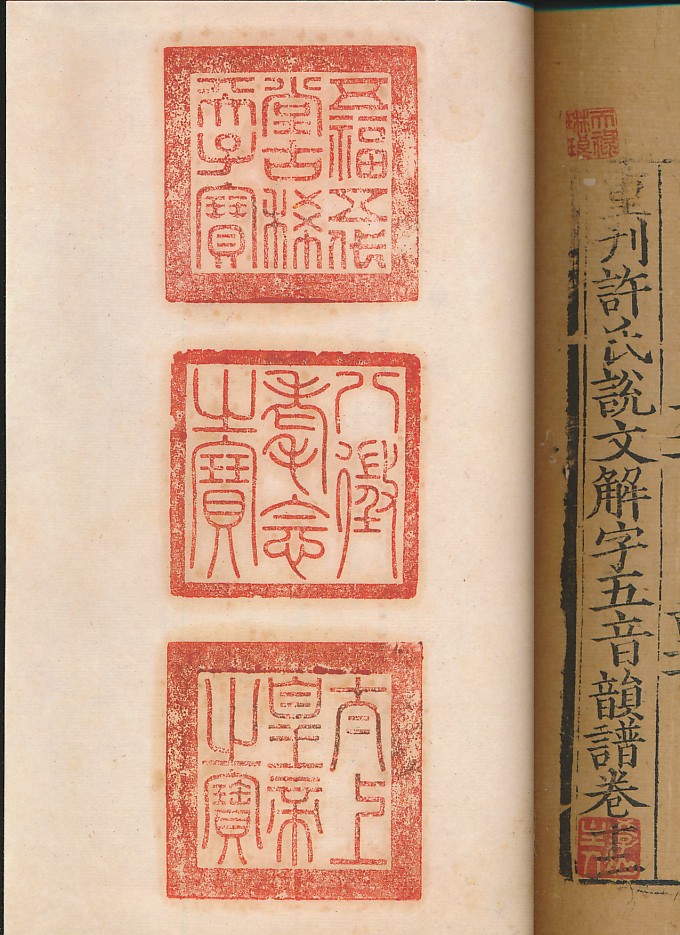 天祿
琳琅
重刊許氏說文解字五音韻譜卷十二
五福五代
堂古稀
天子寶
八徵
耄念
之寶
太上
皇帝
之寶